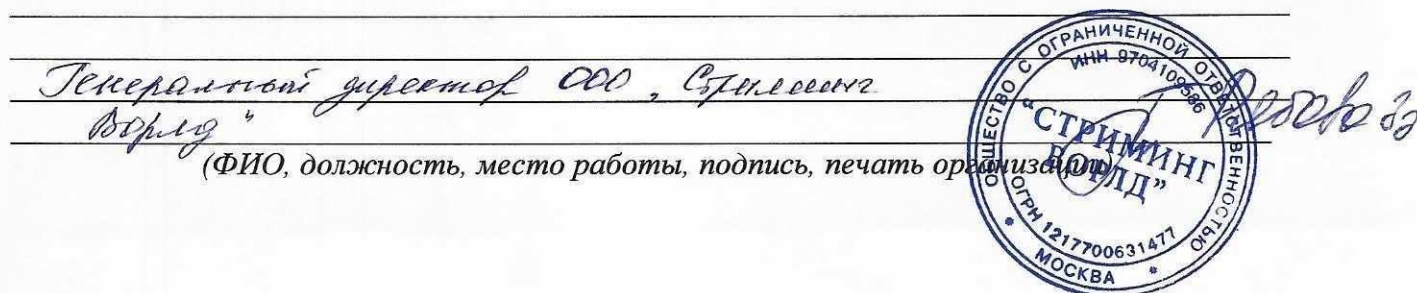 Генеральный директор ООО „Стриминг
Ворлд"
(ФИО, должность, место работы, подпись, печать организации)
ОБЩЕСТВО С ОГРАНИЧЕННОЙ ОТВЕТСТВЕННОСТЬЮ
ИНН 9704109586
"СТРИМИНГ
ВОРЛД"
ОГРН 1217700631477
* МОСКВА *